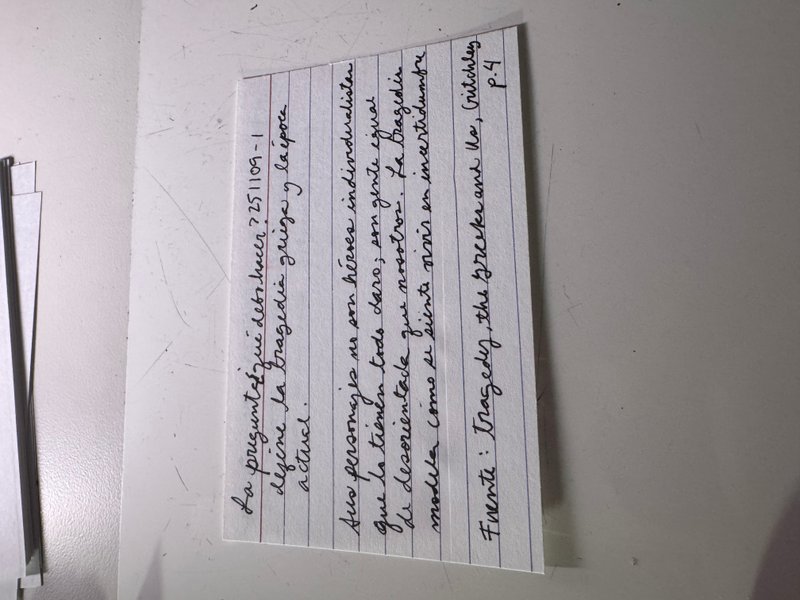 La pregunta ¿qué debo hacer? 251109-1
define la tragedia griega y la época
actual.
Sus personajes no son héroes individualistas
que lo tienen todo claro; son gente igual
de desorientada que nosotros. La tragedia
modela cómo se siente vivir en incertidumbre
Fuente: tragedy, the greeks and us, Critchley
p. 4